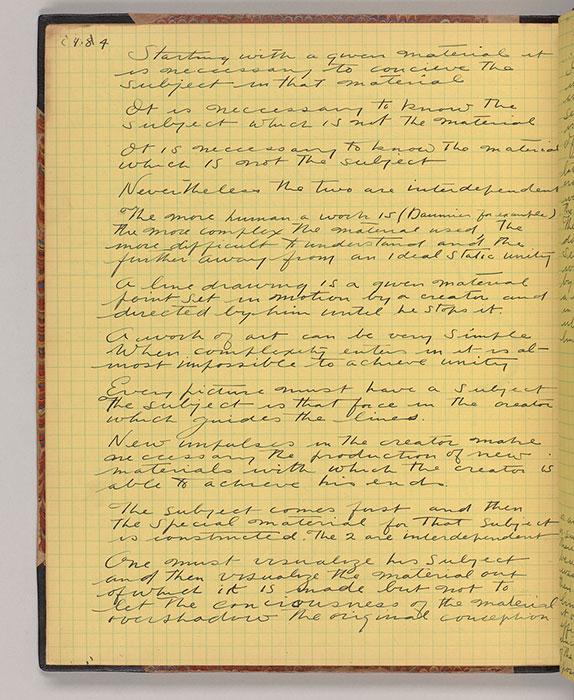 Starting with a given material it
is neccessary to concieve the
subject in that material
It is neccessary to know the
subject which is not the material
It is neccessary to know the material
which is not the subject
Nevertheless the two are interdependent
The more human a work is (Daumier for example)
the more complex the material used the
more difficult to understand and the
further away from an ideal static unity
A line drawing is a given material
point set in motion by a creator and
directed by him until he stops it.
A work of art can be very simple
When complexity enters in it is al-
most impossible to achieve unity
Every picture must have a subject
The subject is that force in the creator
which guides the lines.
New impulses in the creator make
neccessary the production of new
materials with which the creator is
able to achieve his ends.
The subject comes first and then
the special material for that subject
is constructed. The 2 are interdependent
One must visualize his subject
and then visualize the material out
of which it is made but not to
let the conciousness of the material
overshadow the original conception